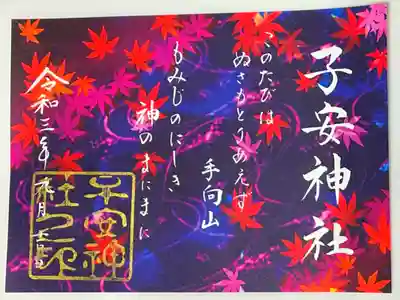 子安神社
このたびは
ぬさもとりあえず
手向山
もみじのにしき
神のまにまに
令和三年
子安神
社之印